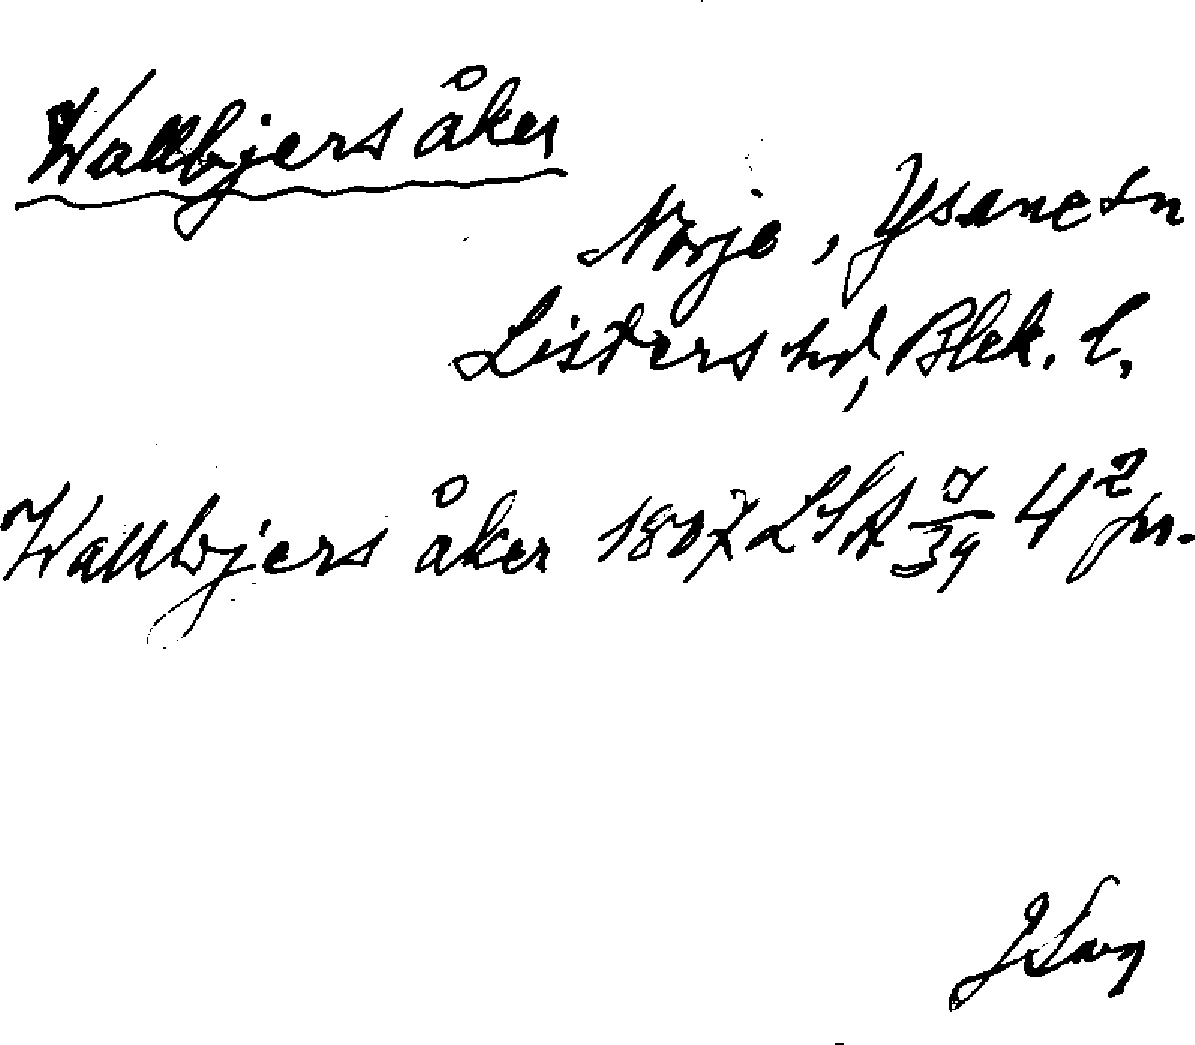 Wallbjers åker
Norje, Ysane sn
Listers hd, Blek. l.
Wallbjers åker 1807 LSA 7/39 4²